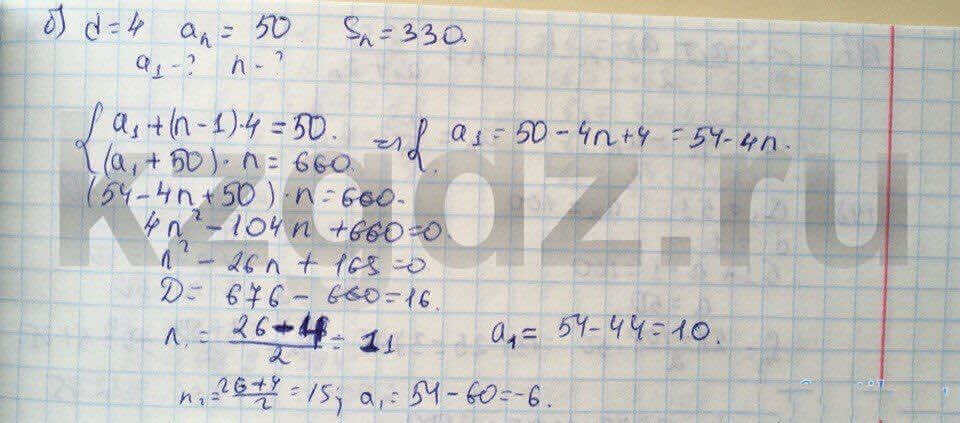 б) d=4 aₙ = 50. Sₙ=330.
a₁-? n-?
{ a₁+(n-1)·4=50. => { a₁=50-4n+4 =54-4n.
(a₁+50)·n=660.
(54-4n+50)·n=660.
4n²-104n+660=0
n²-26n+165=0
D= 676-660=16.
n₁= (26-4)/2 = 11 a₁= 54-44=10.
n₂= (26+4)/2 =15; a₁=54-60=-6.
kzgdz.ru